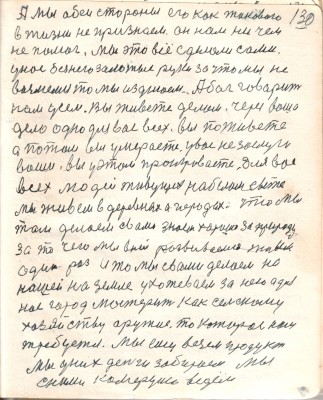 130
А мы обеи стороны его как такового
в жизни не признаем. он нам ни чем
не помог, мы это всё сделали сами.
у нас безнего золотые руки за что мы не
то мы издолаем. А бог говорит
нам усем. Вы живете делом, через ваше
дело одно для вас всех. вы поживете
а потом вы умераете, у вас не
ваши, вы у этом проигрываете. Для вас
всех людей живущих на белом свете
мы живем в деревнях и городах. что мы
там делаем с вами знаем хорошо за природу
за то чего мы в ней развиваемся живем
один раз и то мы с вами делаем не
нашей на земле ухожеваем за него одя
нас город материт как сельскому
хозяйству оружие. то которое нам
требуется. Мы ему везем продукт
мы у них деньги забираем мы
сними комерцию ведём